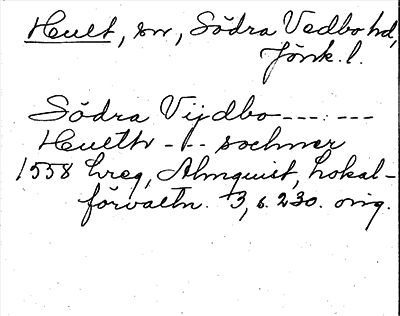 Hult, sn, Södra Vedbo hd,
Jönk. l.
Södra Vijdbo -----
Hullth -"- sochner
1558 hreg, Almquist, Lokal-
förvaltn. 3, s. 230. orig.